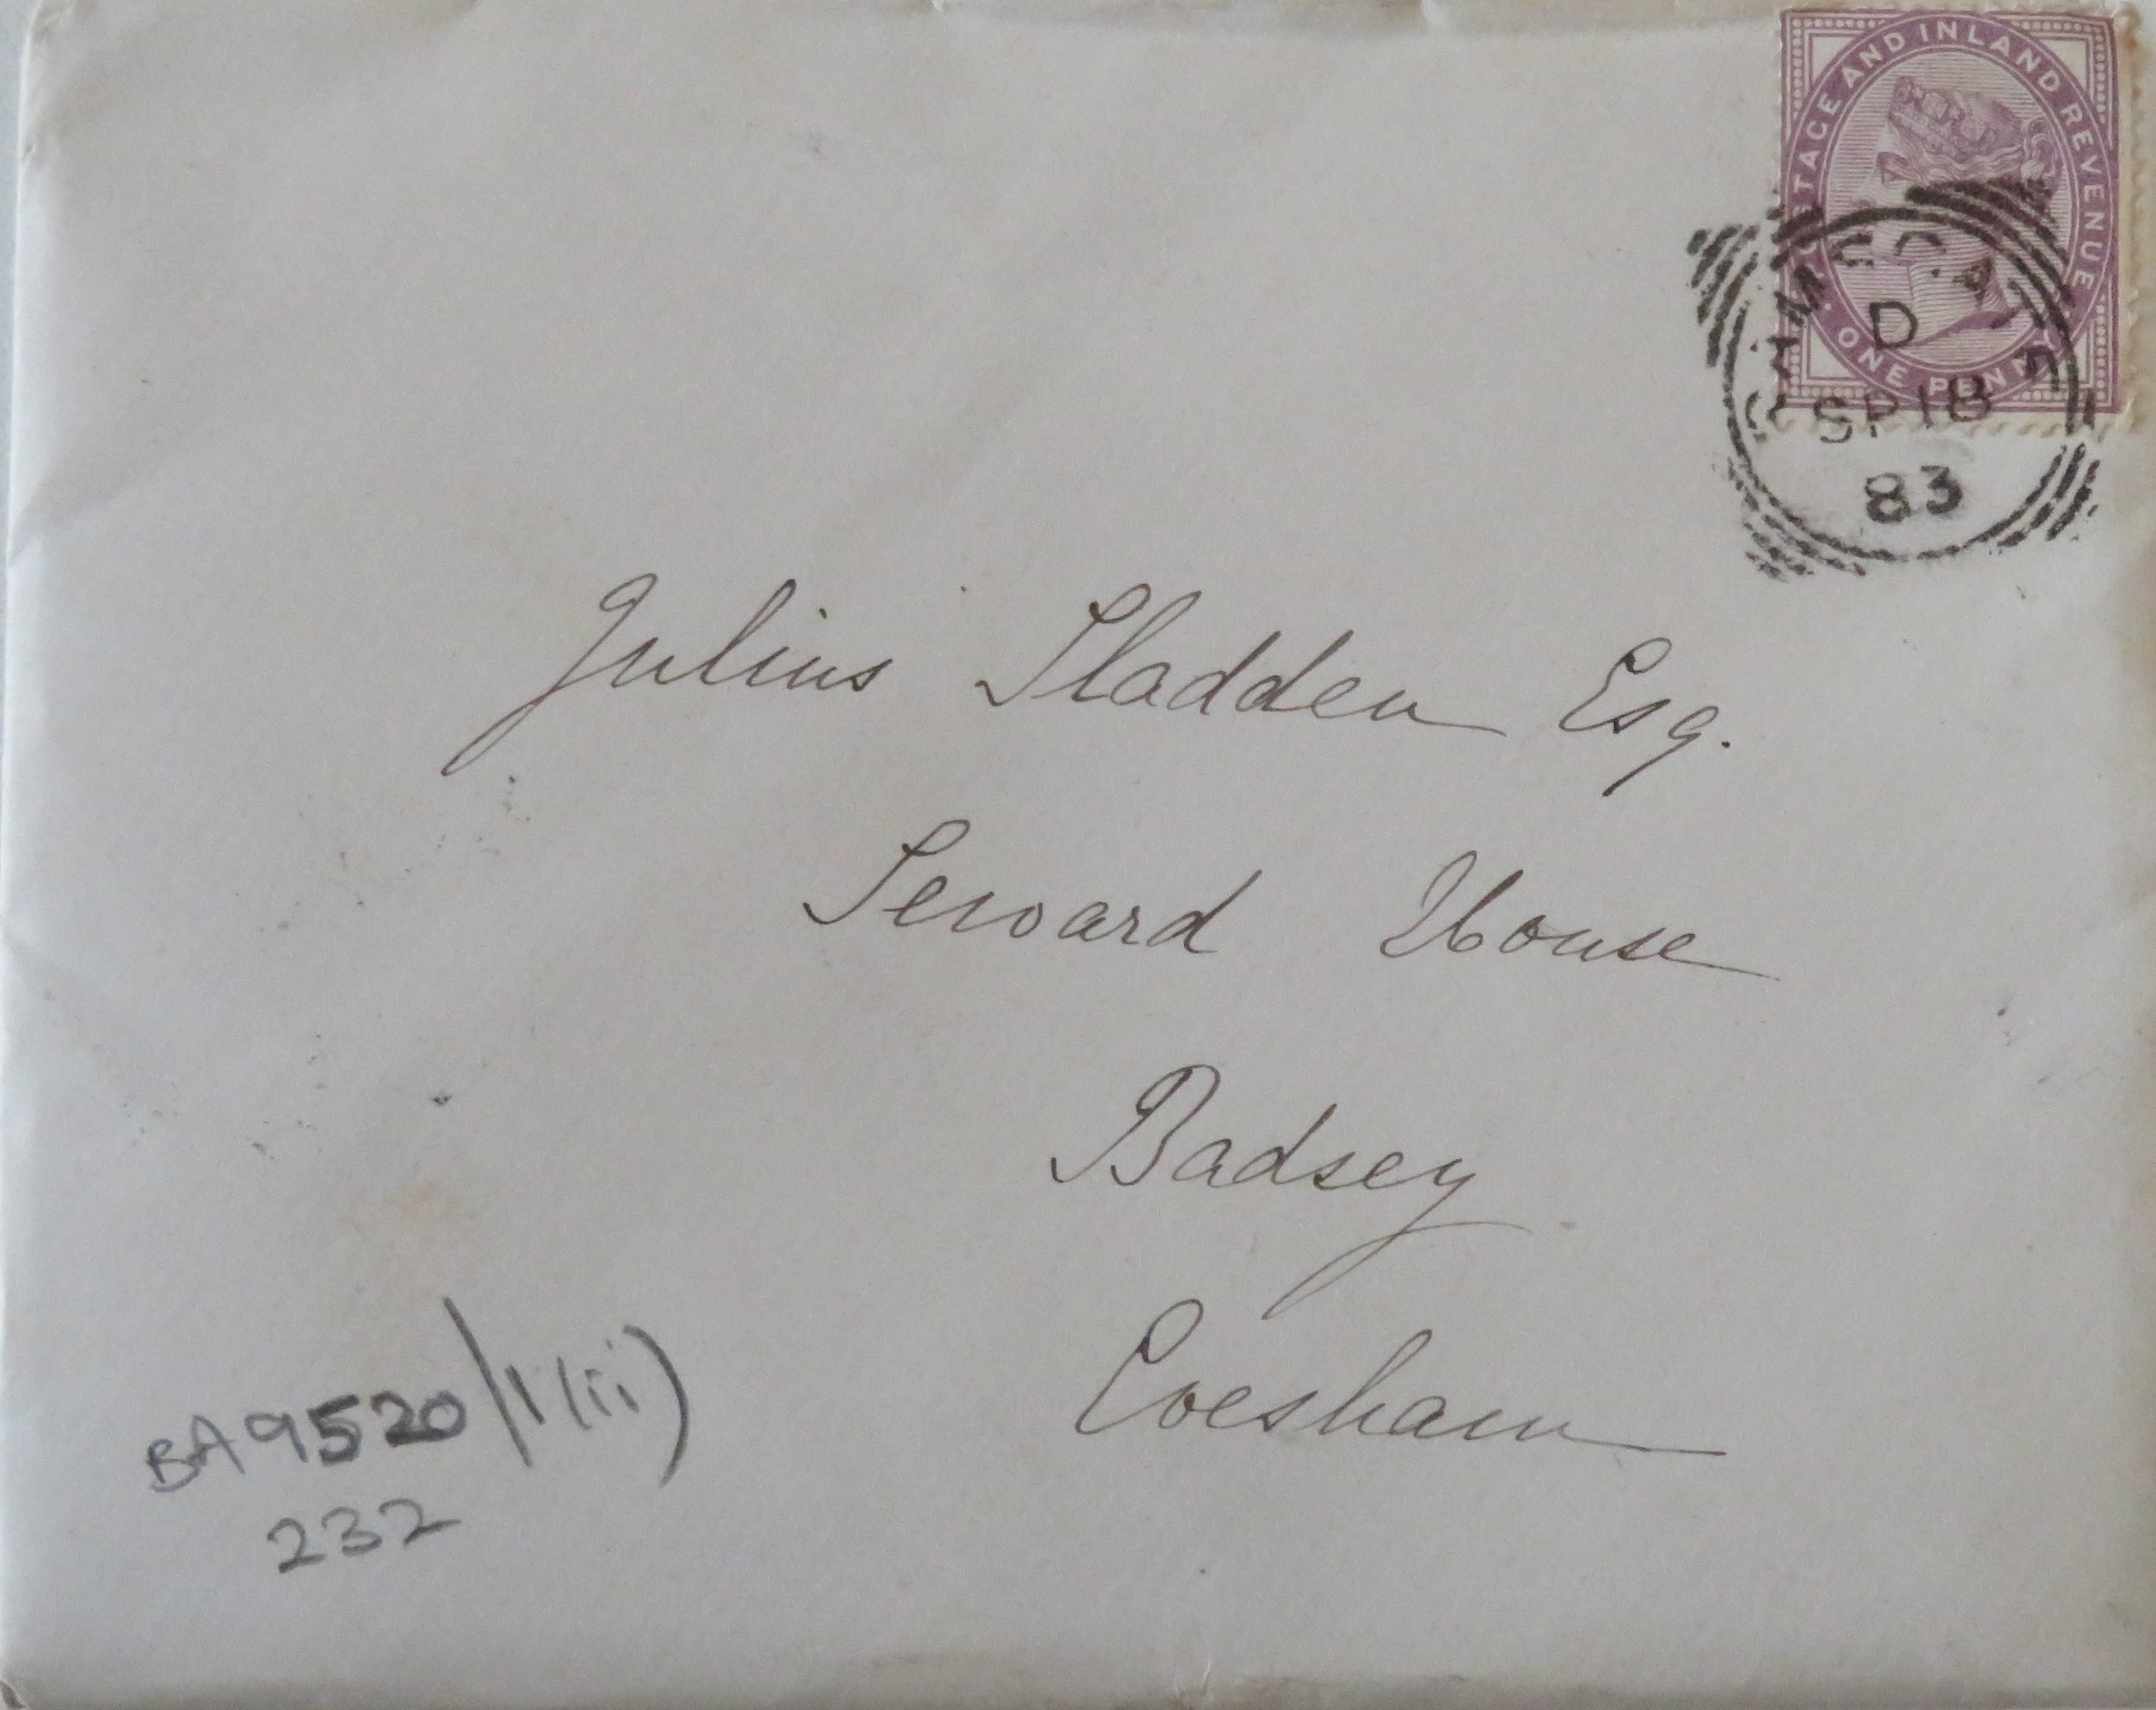 POSTAGE AND INLAND REVENUE
ONE PENNY
RAMSGATE
D
SP 18
83
Julius Sladden Esq.
Seward House
Badsey
Evesham
BA9520/1(ii)
232